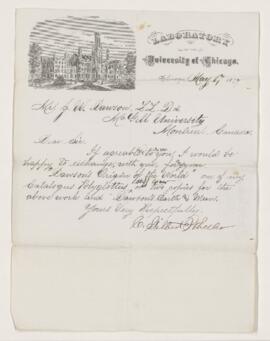 LABORATORY
University of Chicago.
Chicago, May 6, 187
Mr J. W. Dawson, L.L.D.
McGill University
Montreal, Canada.
Dear Sir:
If agreeable to you, I would be
happy to exchange with you, for your
"Dawson's Origin of the World" one of my
Catalogus Polyglottus, or two copies for the
above work and Dawson's Earth & Man.
Yours Very Respectfully,
C. Gilbert Wheeler